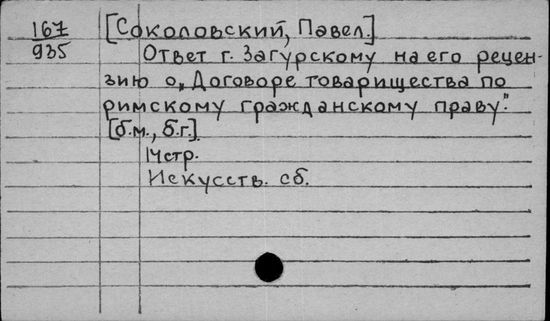 167
935
[Соколовский, Павел]
Ответ г. Загурскому на его рецен-
зию о „Договоре товарищества по
римскому гражданскому праву".
[б.м., б.г.]
14стр.
Искусств. сб.